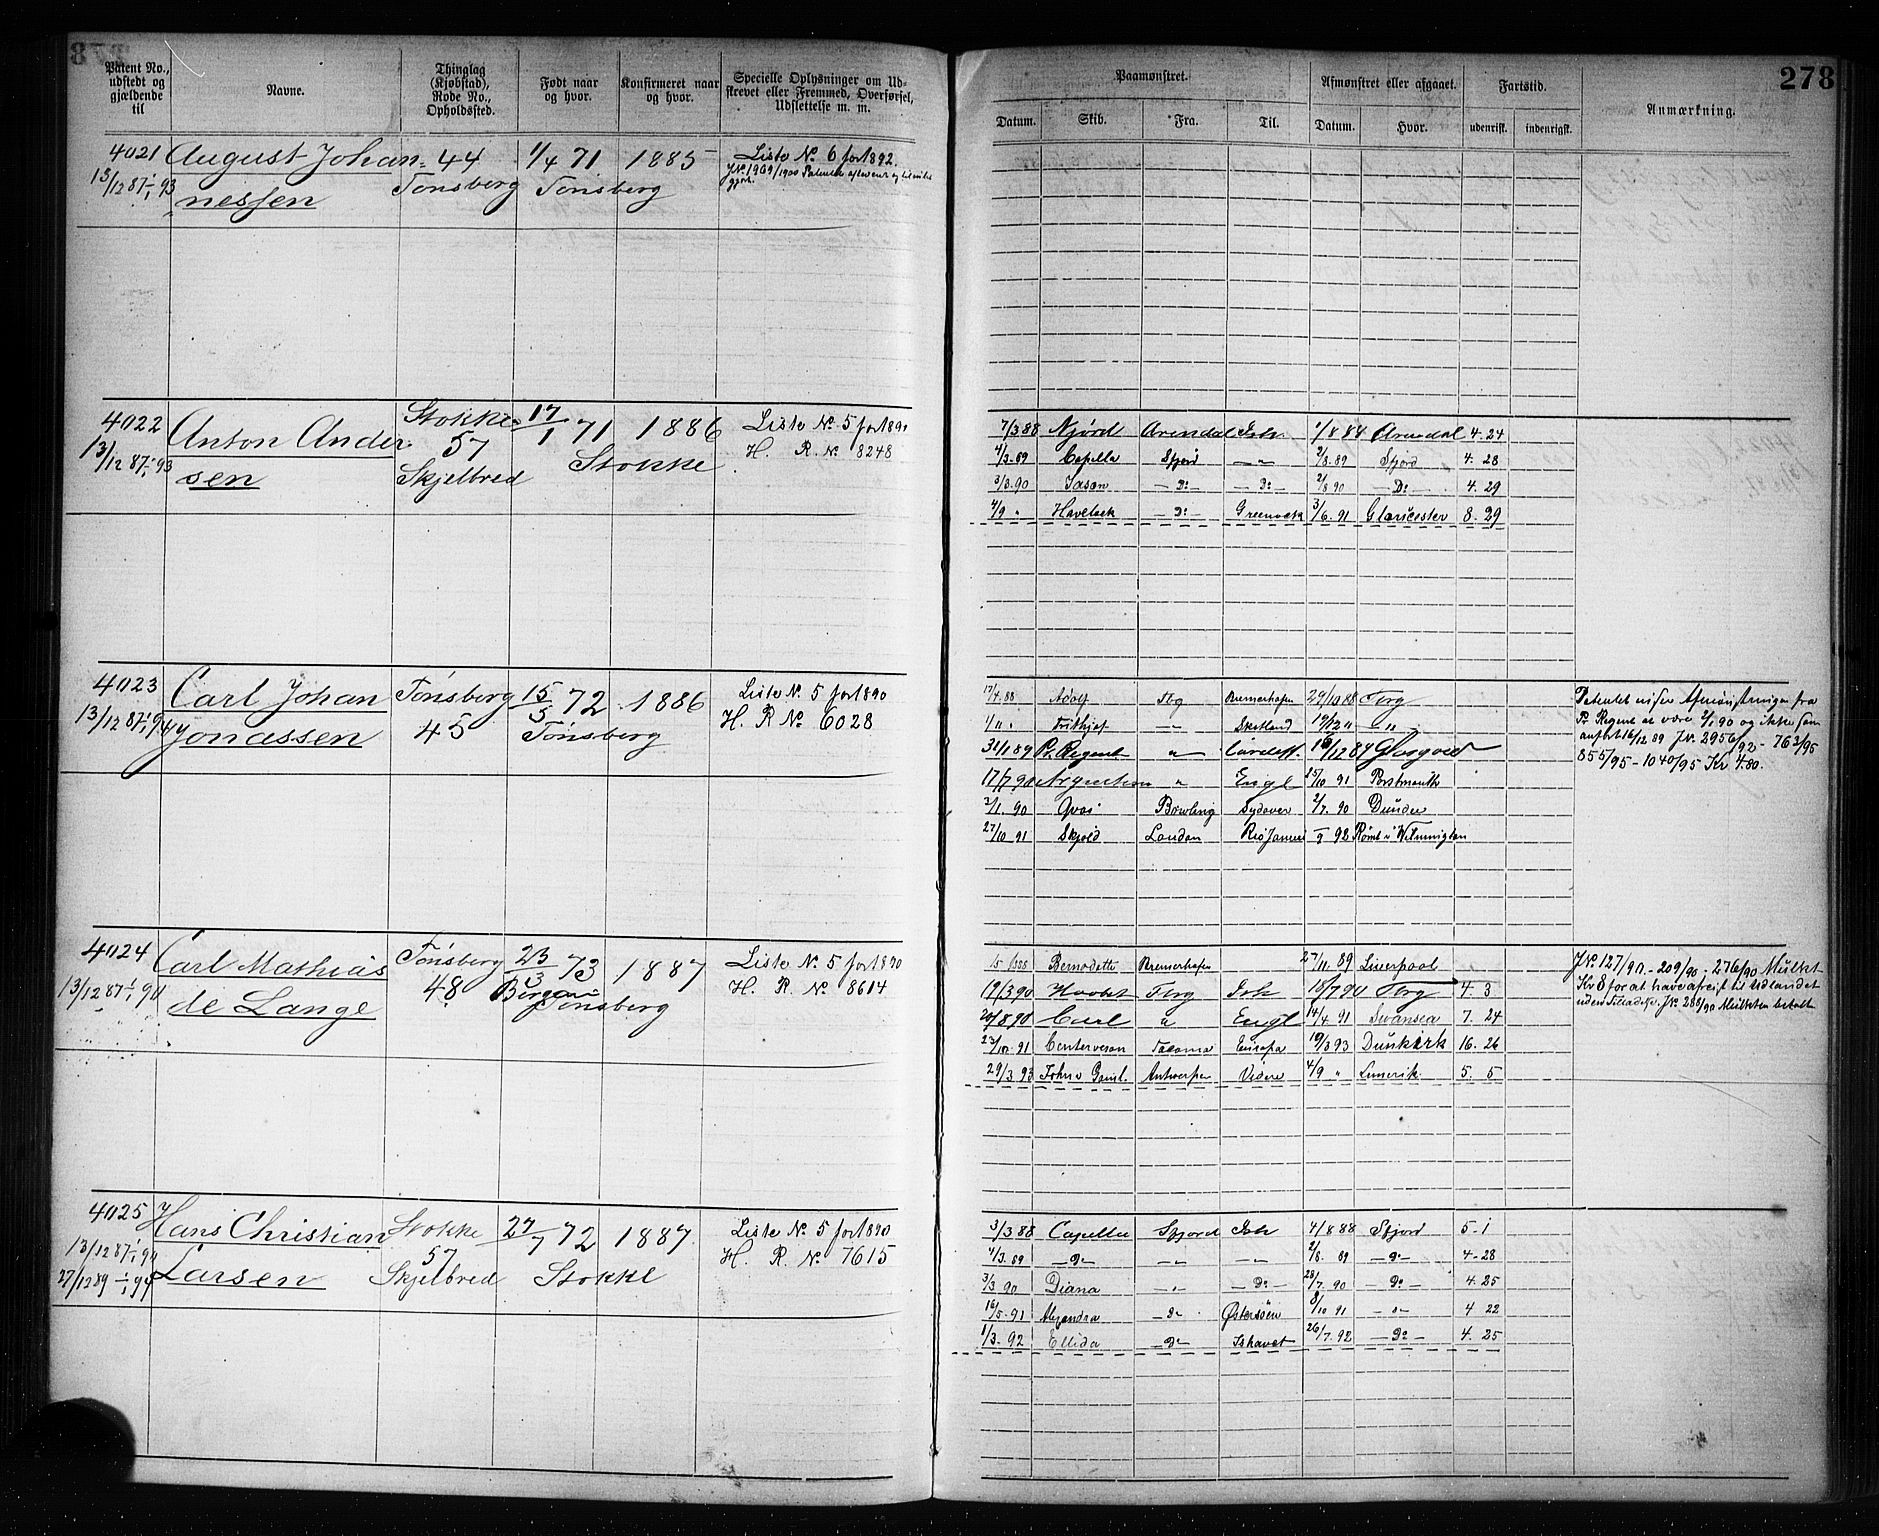 278
Patent No., udstedt og gjældende til
Navne.
Thinglag (Kjøbstad), Rode No., Opholdssted.
Født naar og hvor.
Konfirmeret naar og hvor.
Specielle Oplysninger om Udskrevet eller Fremmed, Overførsel, Udslettelse m. m.
Paamønstret.
Datum. Skib. Fra. Til.
Afmønstret eller afgaaet.
Datum. Hvor.
Fartstid.
udenrisk. indenrigsk.
Anmærkning.
4021 August Johan- 44 1/4 71 1885 Liste No. 6 for 1892.
13/12 87 - 1/1 93 nessen Tønsberg Tønsberg J.No. 1909/1900
4022 Anton Ander Stokke 17/1 71 1886 Liste No. 5 for 1890
13/12 87 - 1/1 93 sen 57 Skjelbred Stokke H. R. No. 8248
7/3 88 Njord Arendal Ish. 1/8 88 Arendal 4. 24
4/3. 89 Capella Sfjord — " — 2/8. 89 Sfjord 4. 28
3/3. 90 Jason — Do — — Do — 2/8 90 — Do — 4. 29
4/9 " Havelock — Do — Greenock 3/6. 91 Gloucester 8. 29
4023 Carl Johan Tønsberg 15/5 72 1886 Liste No. 5 for 1890
13/12 87 - 1/1 94 Jonassen 45 Tønsberg H. R. No. 6028
17/4. 88 Adolf Tbg Bremerhafen 29/10 88 Tbrg
1/11 " Frithjof — " — Skotland 19/12 " — " —
31/1 89 Pr. Regent " Cardiff. 16/12 89 Glasgow
17/7 90 " Engl 25/10 91 Portsmouth
2/1. 90 Bowling Sydover 2/7. 90 Dundee
27/10 91 Skjold London Rio Janeiro 9 92 Rømt i Wilmington
Patentet viser Afmønstringen fra
Pr. Regent at være 2/1 90 og ikke som
anført 16/12 89 J.No. 2956/92 - 763/95
855/95 - 1040/95 Kr 4.80.
4024 Carl Mathias Tønsberg 23/3 73 1887 Liste No. 5 for 1890
13/12 87 - 1/1 94 de Lange 48 Bergen Tønsberg H. R. No. 8614
Bernadette Bremerhafen 27/11. 89 Liverpool
19/3 90 Haabet Tbrg Ish 18/7 90 Tbrg 4. 3
20/8. 90 Carl " Engl 14/4 91 Swansea 7. 24
23/10. 91 Tacoma Europa 19/3 93 Dunkerk 16. 26
29/3. 93 Antwerpen Videre 4/9 " Limerik. 5. 5
J.No. 127/90. - 209/90 - 276/90 Mulkt
Kr 8 for at have afreist til Udlandet
uden Tilladelse. J.No. 288/90 Mulkten betalt
4025 Hans Christian Stokke 27/7 72 1887 Liste No. 5 for 1890
13/12 87 - 1/1 94 Larsen 57 Stokke H. R. No. 7615
27/12 89 - 1/1 94 Skjelbred
3/3 88 Capella Sfjord Ish 4/8 88 Sfjord 5. 1
4/3. 89 — Do — — " — — " — 2/8. 89 — Do — 4. 28
3/3. 90 Diana — " — — Do — 28/7. 90 — Do — 4. 25
16/5. 91 Alexandra — Do — Østersöen 8/10 91 — " — 4 22
1/3. 92 Ellida — Do — Ishavet 26/7. 92 — Do — 4. 25